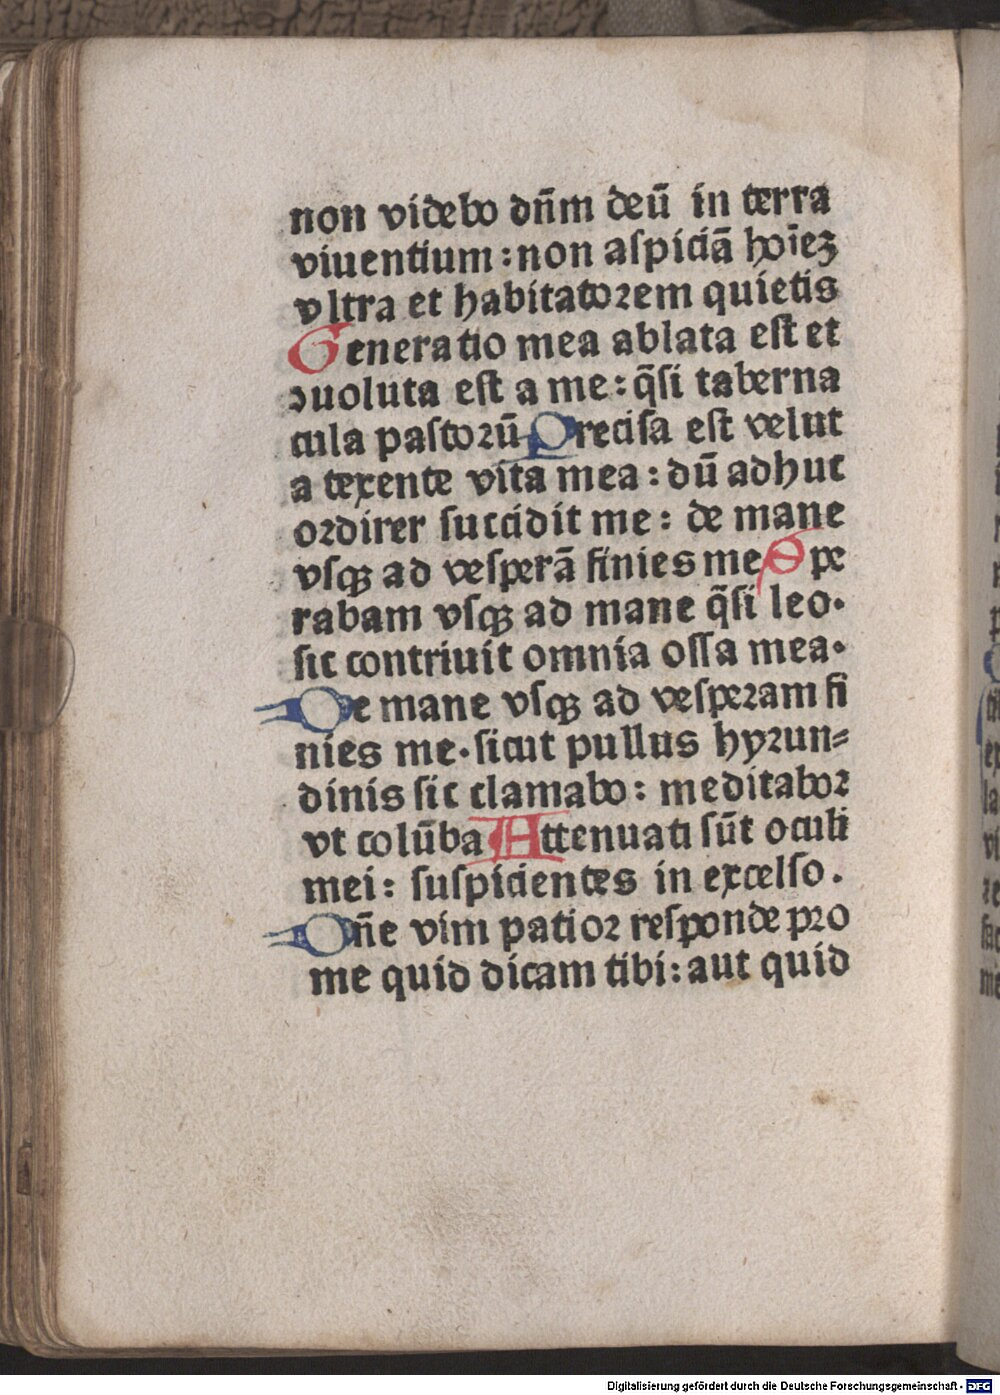 non videbo dñm deū in terra
viuentium : non aſpiciā hoīeꝫ
vltra et habitatoꝛem quietis
Generatio mea ablata eſt et
ꝯuoluta eſt a me : q̄ſi taberna
cula paſtoꝛū Preciſa eſt velut
a texente vita mea : dū adhuc
oꝛdirer ſuccidit me : de mane
vſqꝫ ad veſperā finies me Spe
rabam vſqꝫ ad mane q̄ſi leo.
ſic contriuit omnia oſſa mea.
De mane vſqꝫ ad veſpeꝛam fi
nies me. ſicut pullus hyꝛun⸗
dinis ſic clamabo : meditaboꝛ
vt colūba Attenuati ſūt oculi
mei : ſuſpicientes in excelſo.
Dñe vim patioꝛ reſponde pꝛo
me quid dicam tibi : aut quid
Digitalisierung gefördert durch die Deutsche Forschungsgemeinschaft - DFG